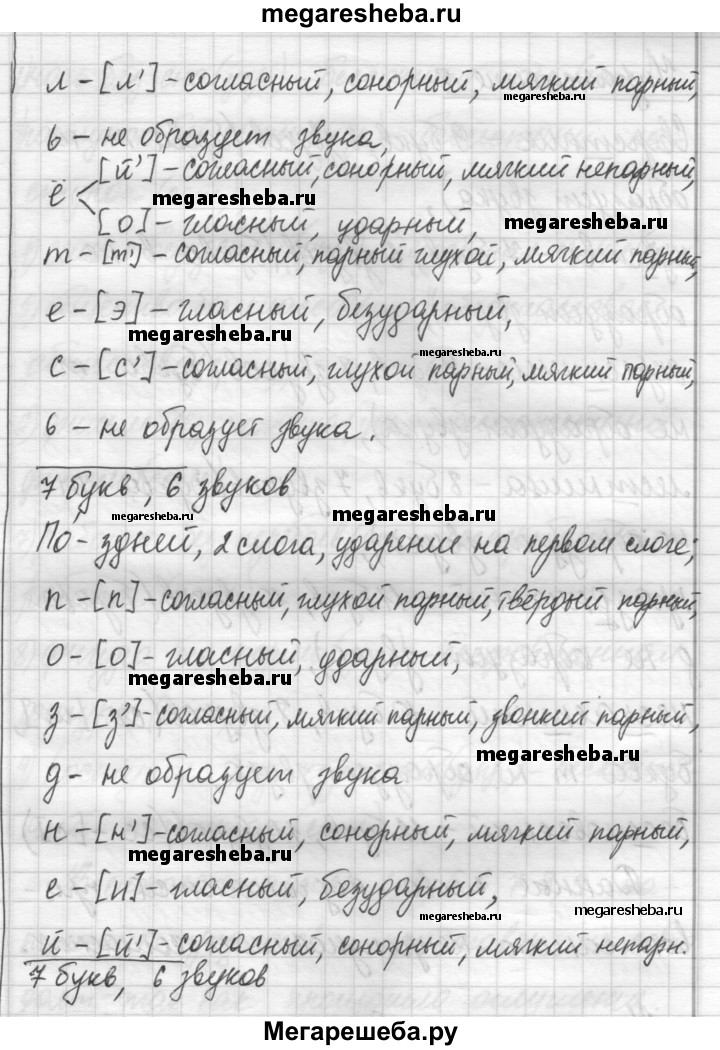 megaresheba.ru
л – [л'] – согласный, сонорный, мягкий парный,
megaresheba.ru
ь – не образует звука,
ё < [й'] – согласный, сонорный, мягкий непарный,
megaresheba.ru
[о] – гласный, ударный,
megaresheba.ru
т – [т'] – согласный, парный глухой, мягкий парный,
е – [э] – гласный, безударный,
megaresheba.ru
megaresheba.ru
с – [с'] – согласный, глухой парный, мягкий парный,
ь – не образует звука.
7 букв, 6 звуков
megaresheba.ru
megaresheba.ru
По́ – здней, 2 слога, ударение на первом слоге;
п – [п] – согласный, глухой парный, твёрдый парный,
о – [о] – гласный, ударный,
megaresheba.ru
з – [з'] – согласный, мягкий парный, звонкий парный,
megaresheba.ru
д – не образует звука
н – [н'] – согласный, сонорный, мягкий парный,
megaresheba.ru
е – [и] – гласный, безударный,
megaresheba.ru
megaresheba.ru
й – [й'] – согласный, сонорный, мягкий непарн.
7 букв, 6 звуков
Мегарешеба.ру